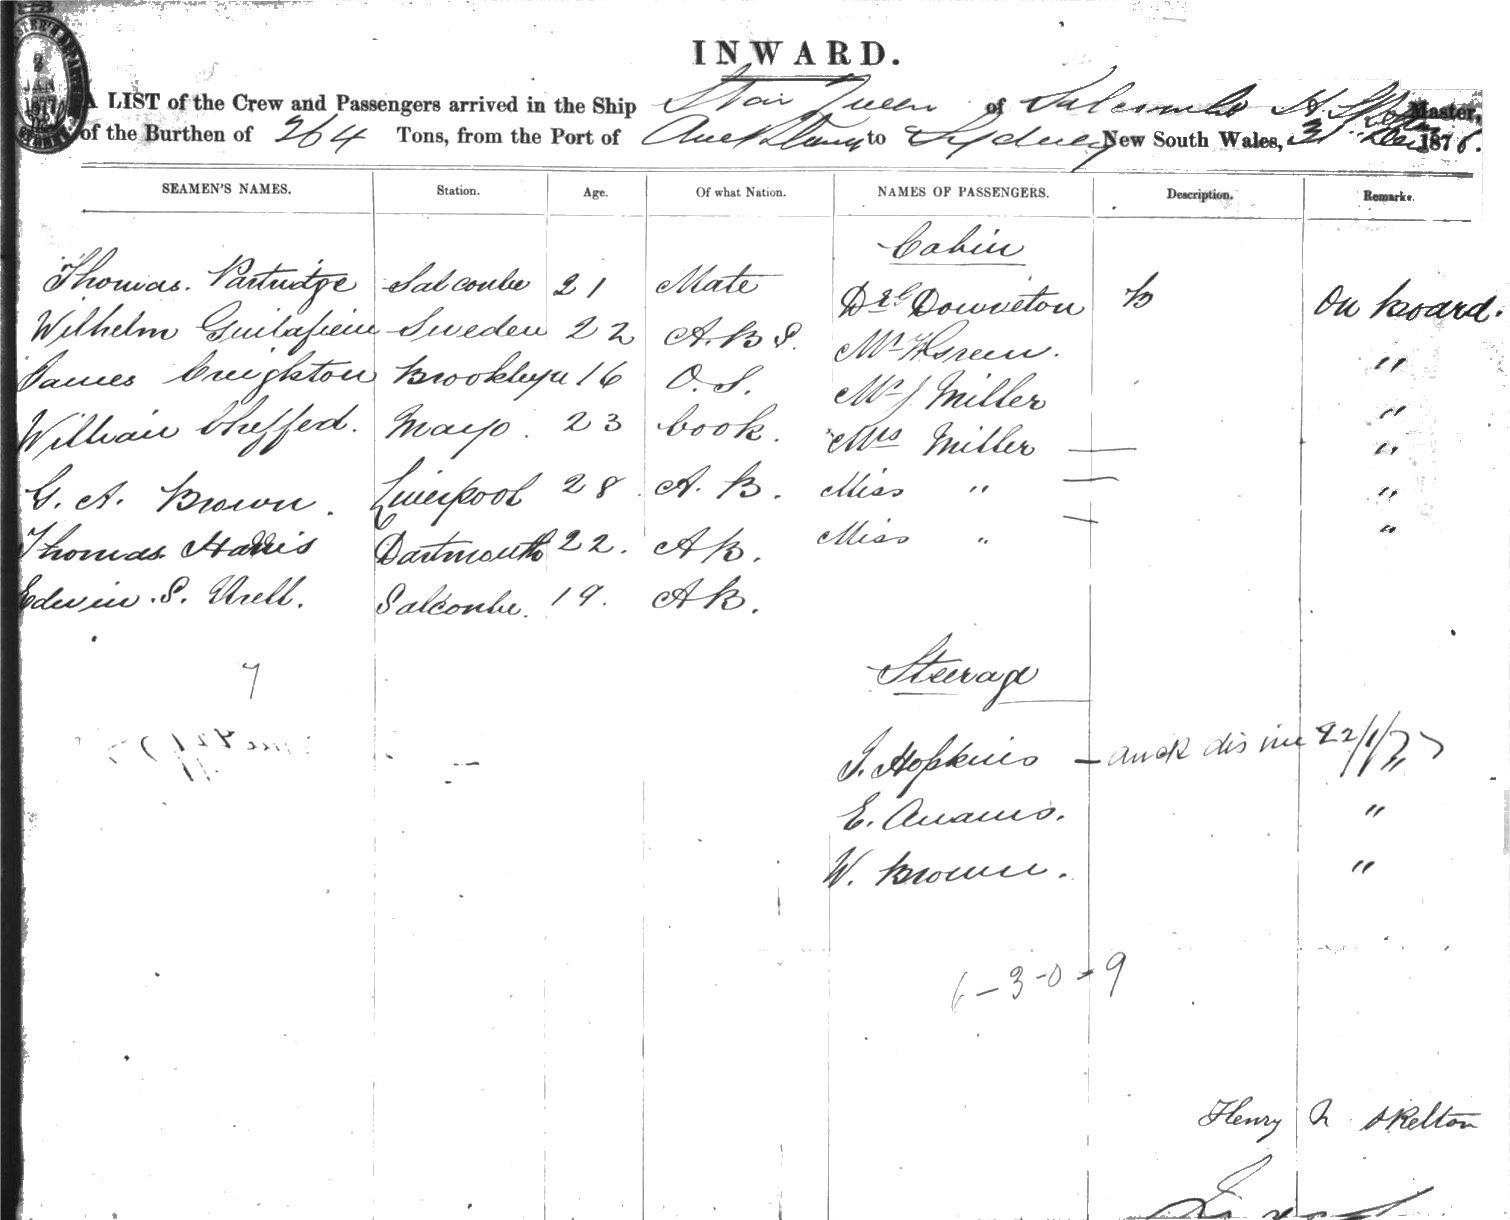 INWARD.
A LIST of the Crew and Passengers arrived in the Ship Star Queen of Salcombe H. Master,
of the Burthen of 264 Tons, from the Port of Auckland to Sydney New South Wales, 31 Dec 1876.
SEAMEN'S NAMES. Station. Age. Of what Nation. NAMES OF PASSENGERS. Description. Remarks.
Cabin
Thomas. Partridge Salcombe 21 Mate Downeton On board.
Wilhelm Sweden 22 A.B S. Mr Green. "
James Creighton Brooklyn 16 O.S. Mr J Miller "
William Cheffed. Mayo. 23 Cook. Mrs Miller — "
G. A. Brown. Liverpool 28. A. B. Miss " — "
Thomas Harris Dartmouth 22. AB. Miss " — "
Edwin. S. Salcombe. 19. AB.
7
Steerage
J. Hopkins — "
E. Adams. "
W. Brown. "
6-3-0=9
Henry N Skelton